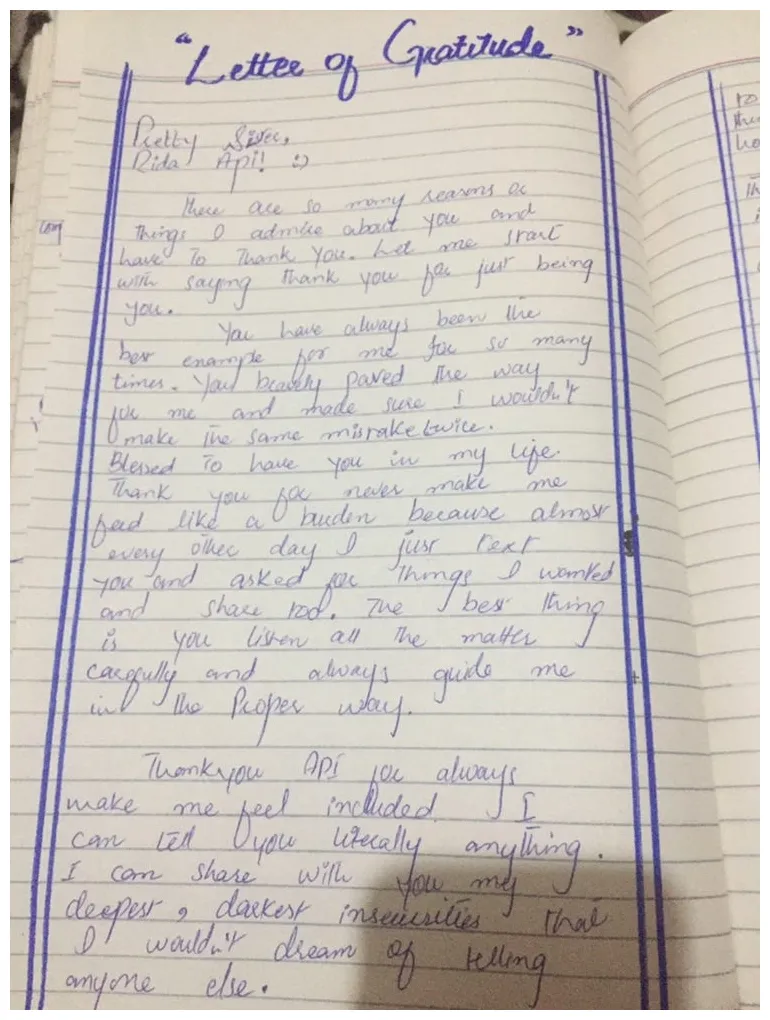 "Letter of Gratitude"
Pretty Sister,
Rida Api! :)
There are so many reasons or
things I admire about you and
have to Thank you. Let me start
with saying thank you for just being
you.
You have always been the
best example for me for so many
times. You bravely paved the way
for me and made sure I wouldn't
make the same mistake twice.
Blessed To have you in my life.
Thank you for never make me
feed like a burden because almost
every other day I just text
you and asked for Things I wanted
and share too. The best thing
is you listen all the matter
carefully and always guide me
in the Proper way.
Thankyou API for always
make me feel included. I
can tell you literally anything.
I can share with you my
deepest, darkest insecurities that
I wouldn't dream of telling
anyone else.
to